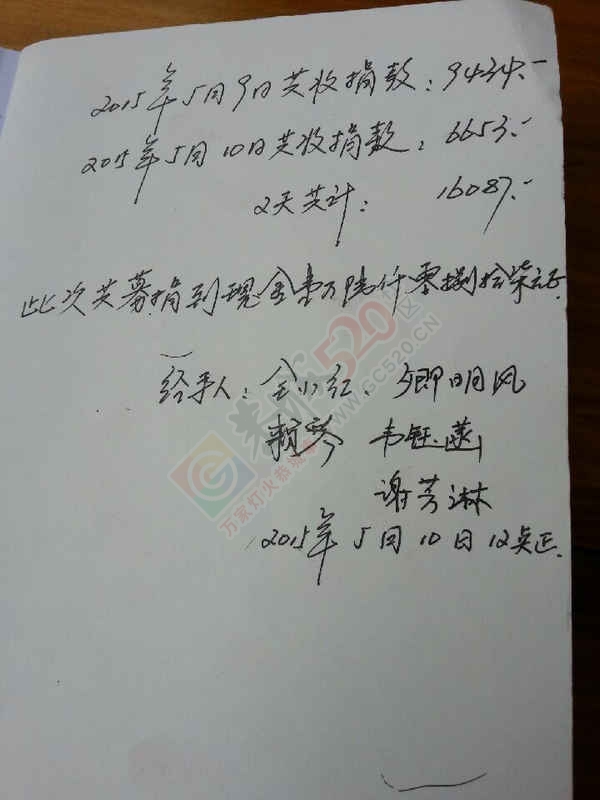 2015年5月9日共收捐款：9434.-
2015年5月10日共收捐款：6653.-
2天共计：16087.-
此次共募捐到现金壹万陆仟零捌拾柒元正.
经手人：全小红、卿明凤
赖琴 韦钰菡
谢芳淋
2015年5月10日12点正.
恭城520社区
WWW.GC520.CN
万家灯火恭城